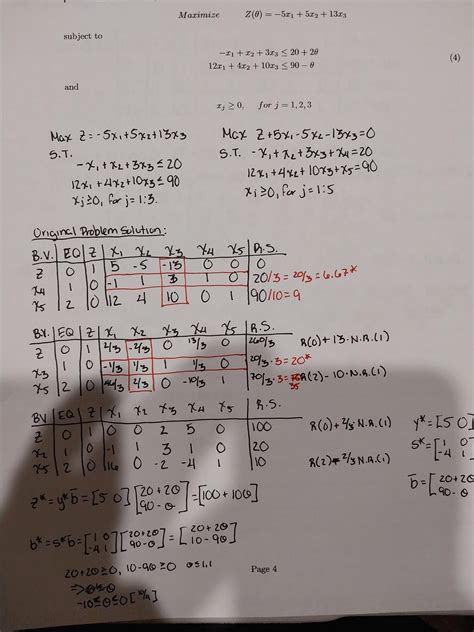 Maximize Z(θ) = −5x₁ + 5x₂ + 13x₃
subject to
−x₁ + x₂ + 3x₃ ≤ 20 + 2θ
12x₁ + 4x₂ + 10x₃ ≤ 90 − θ
(4)
and
xⱼ ≥ 0, for j = 1, 2, 3
Max Z = -5x₁+5x₂+13x₃
S.T. -x₁+x₂+3x₃≤20
12x₁+4x₂+10x₃≤90
xⱼ≥0, for j=1:3.
Max Z+5x₁-5x₂-13x₃=0
S.T. -x₁+x₂+3x₃+x₄=20
12x₁+4x₂+10x₃+x₅=90
xⱼ≥0, for j=1:5
Original Problem Solution:
B.V. EQ Z x₁ x₂ x₃ x₄ x₅ R.S.
Z 0 1 5 -5 -13 0 0 0
x₄ 1 0 -1 1 3 1 0 20/3 = 20/3 = 6.67*
x₅ 2 0 12 4 10 0 1 90/10 = 9
B.V. EQ Z x₁ x₂ x₃ x₄ x₅ R.S.
Z 0 1 2/3 -2/3 0 13/3 0 260/3 R(0)+13·N.R.(1)
x₃ 1 0 -1/3 1/3 1 1/3 0 20/3·3=20*
x₅ 2 0 46/3 2/3 0 -10/3 1 70/3·3= 35 R(2)-10·N.R.(1)
BV EQ Z x₁ x₂ x₃ x₄ x₅ R.S.
Z 0 1 0 0 2 5 0 100 R(0)+2/3·N.R.(1)
x₂ 1 0 -1 1 3 1 0 20
x₅ 2 0 16 0 -2 -4 1 10 R(2)-2/3 N.R.(1)
y* = [5 0]
S* = [1 0
-4 1]
b̄ = [20+2θ
90-θ]
Z* = y* b̄ = [5 0] [20+2θ
90-θ] = [100+10θ]
b* = S* b̄ = [1 0
-4 1] [20+2θ
90-θ] = [20+2θ
10-9θ]
20+2θ≥0, 10-9θ≥0 θ≤1.1
-10≤θ≤0
Page 4